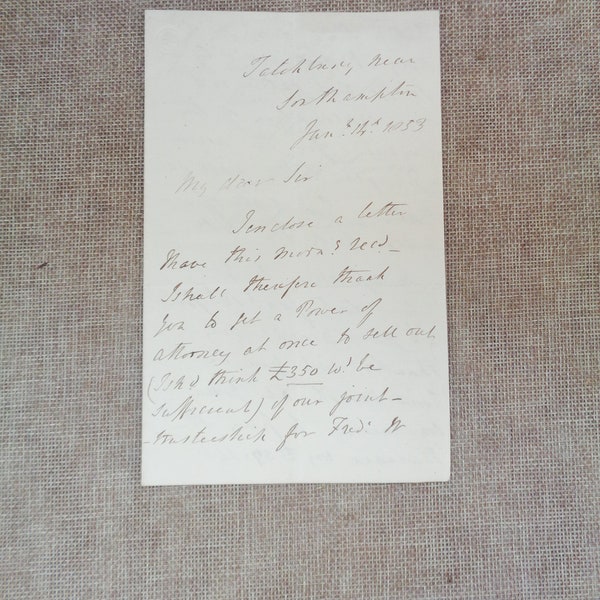 Tatchbury, near
Southampton
Jany. 14th. 1853
My dear Sir
I enclose a letter
I have this morng. recd. –
I shall therefore thank
you to get a Power of
attorney at once to sell out
(I shd. think £350 wd. be
sufficient) of our joint-
-trusteeship for Fredk. W